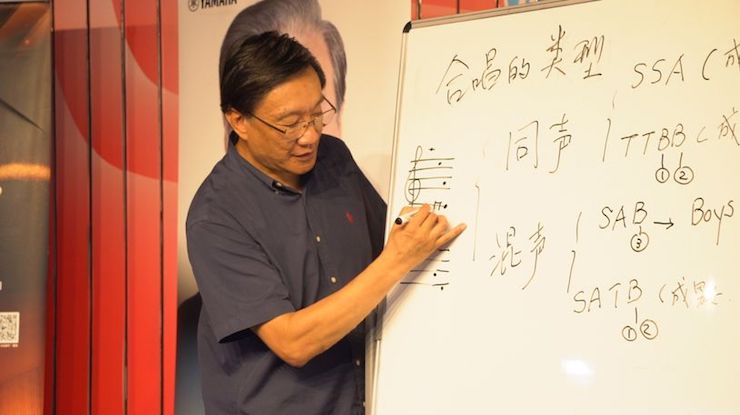 YAMAHA
合唱的类型
SSA (成
同声
TTBB (成
① ②
SAB → Boys
③
混声
SATB (成
① ②